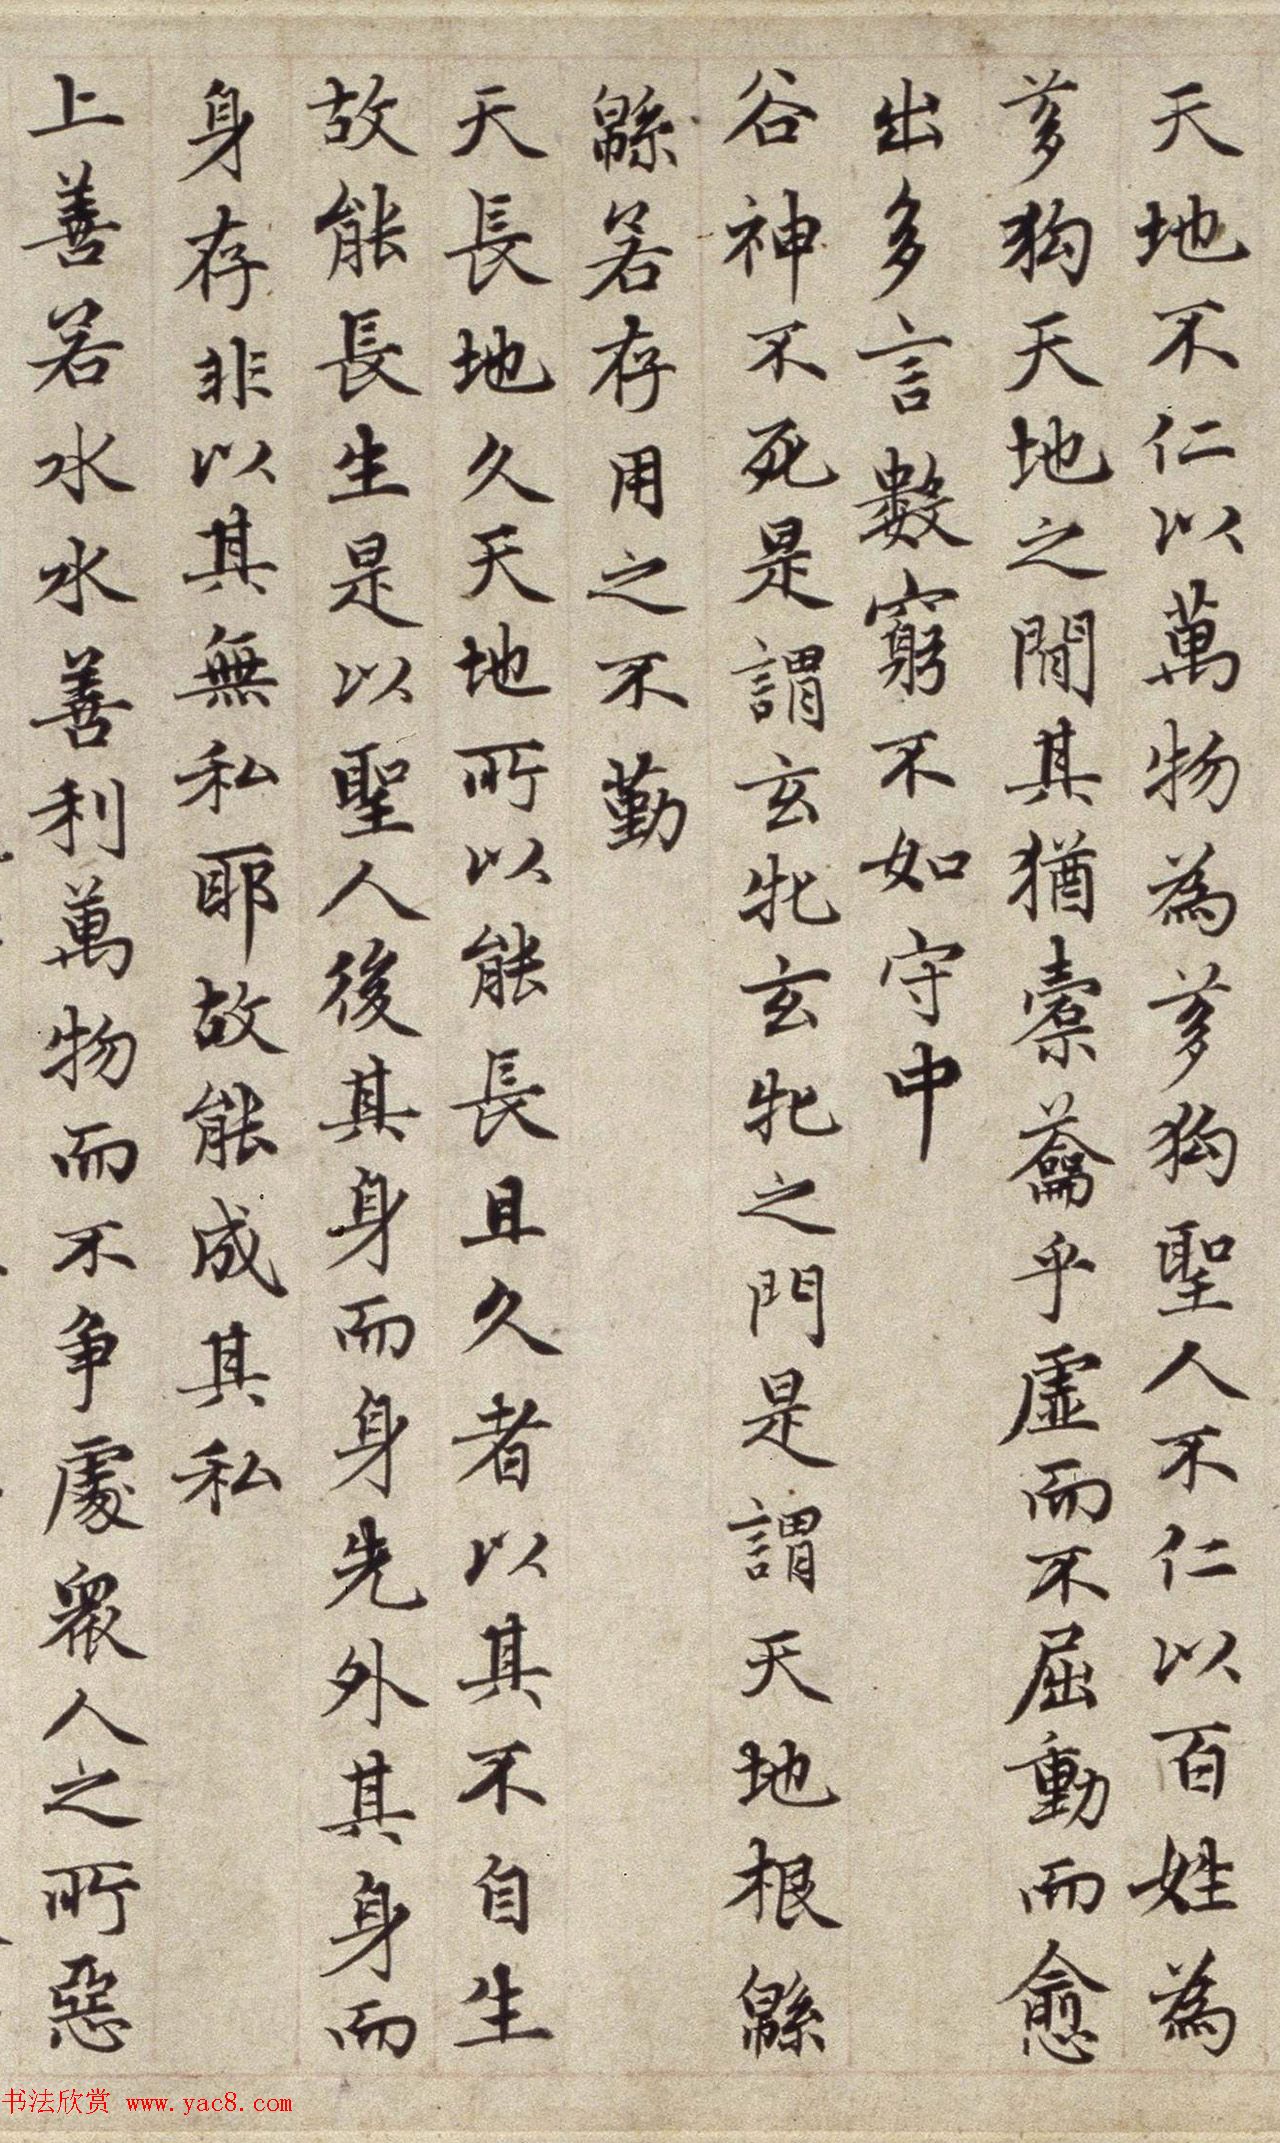 天地不仁以萬物為芻狗聖人不仁以百姓為
芻狗天地之間其猶橐龠乎虛而不屈動而愈
出多言數窮不如守中
谷神不死是謂玄牝玄牝之門是謂天地根綿
綿若存用之不勤
天長地久天地所以能長且久者以其不自生
故能長生是以聖人後其身而身先外其身而
身存非以其無私耶故能成其私
上善若水水善利萬物而不爭處衆人之所惡
书法欣赏 www.yac8.com